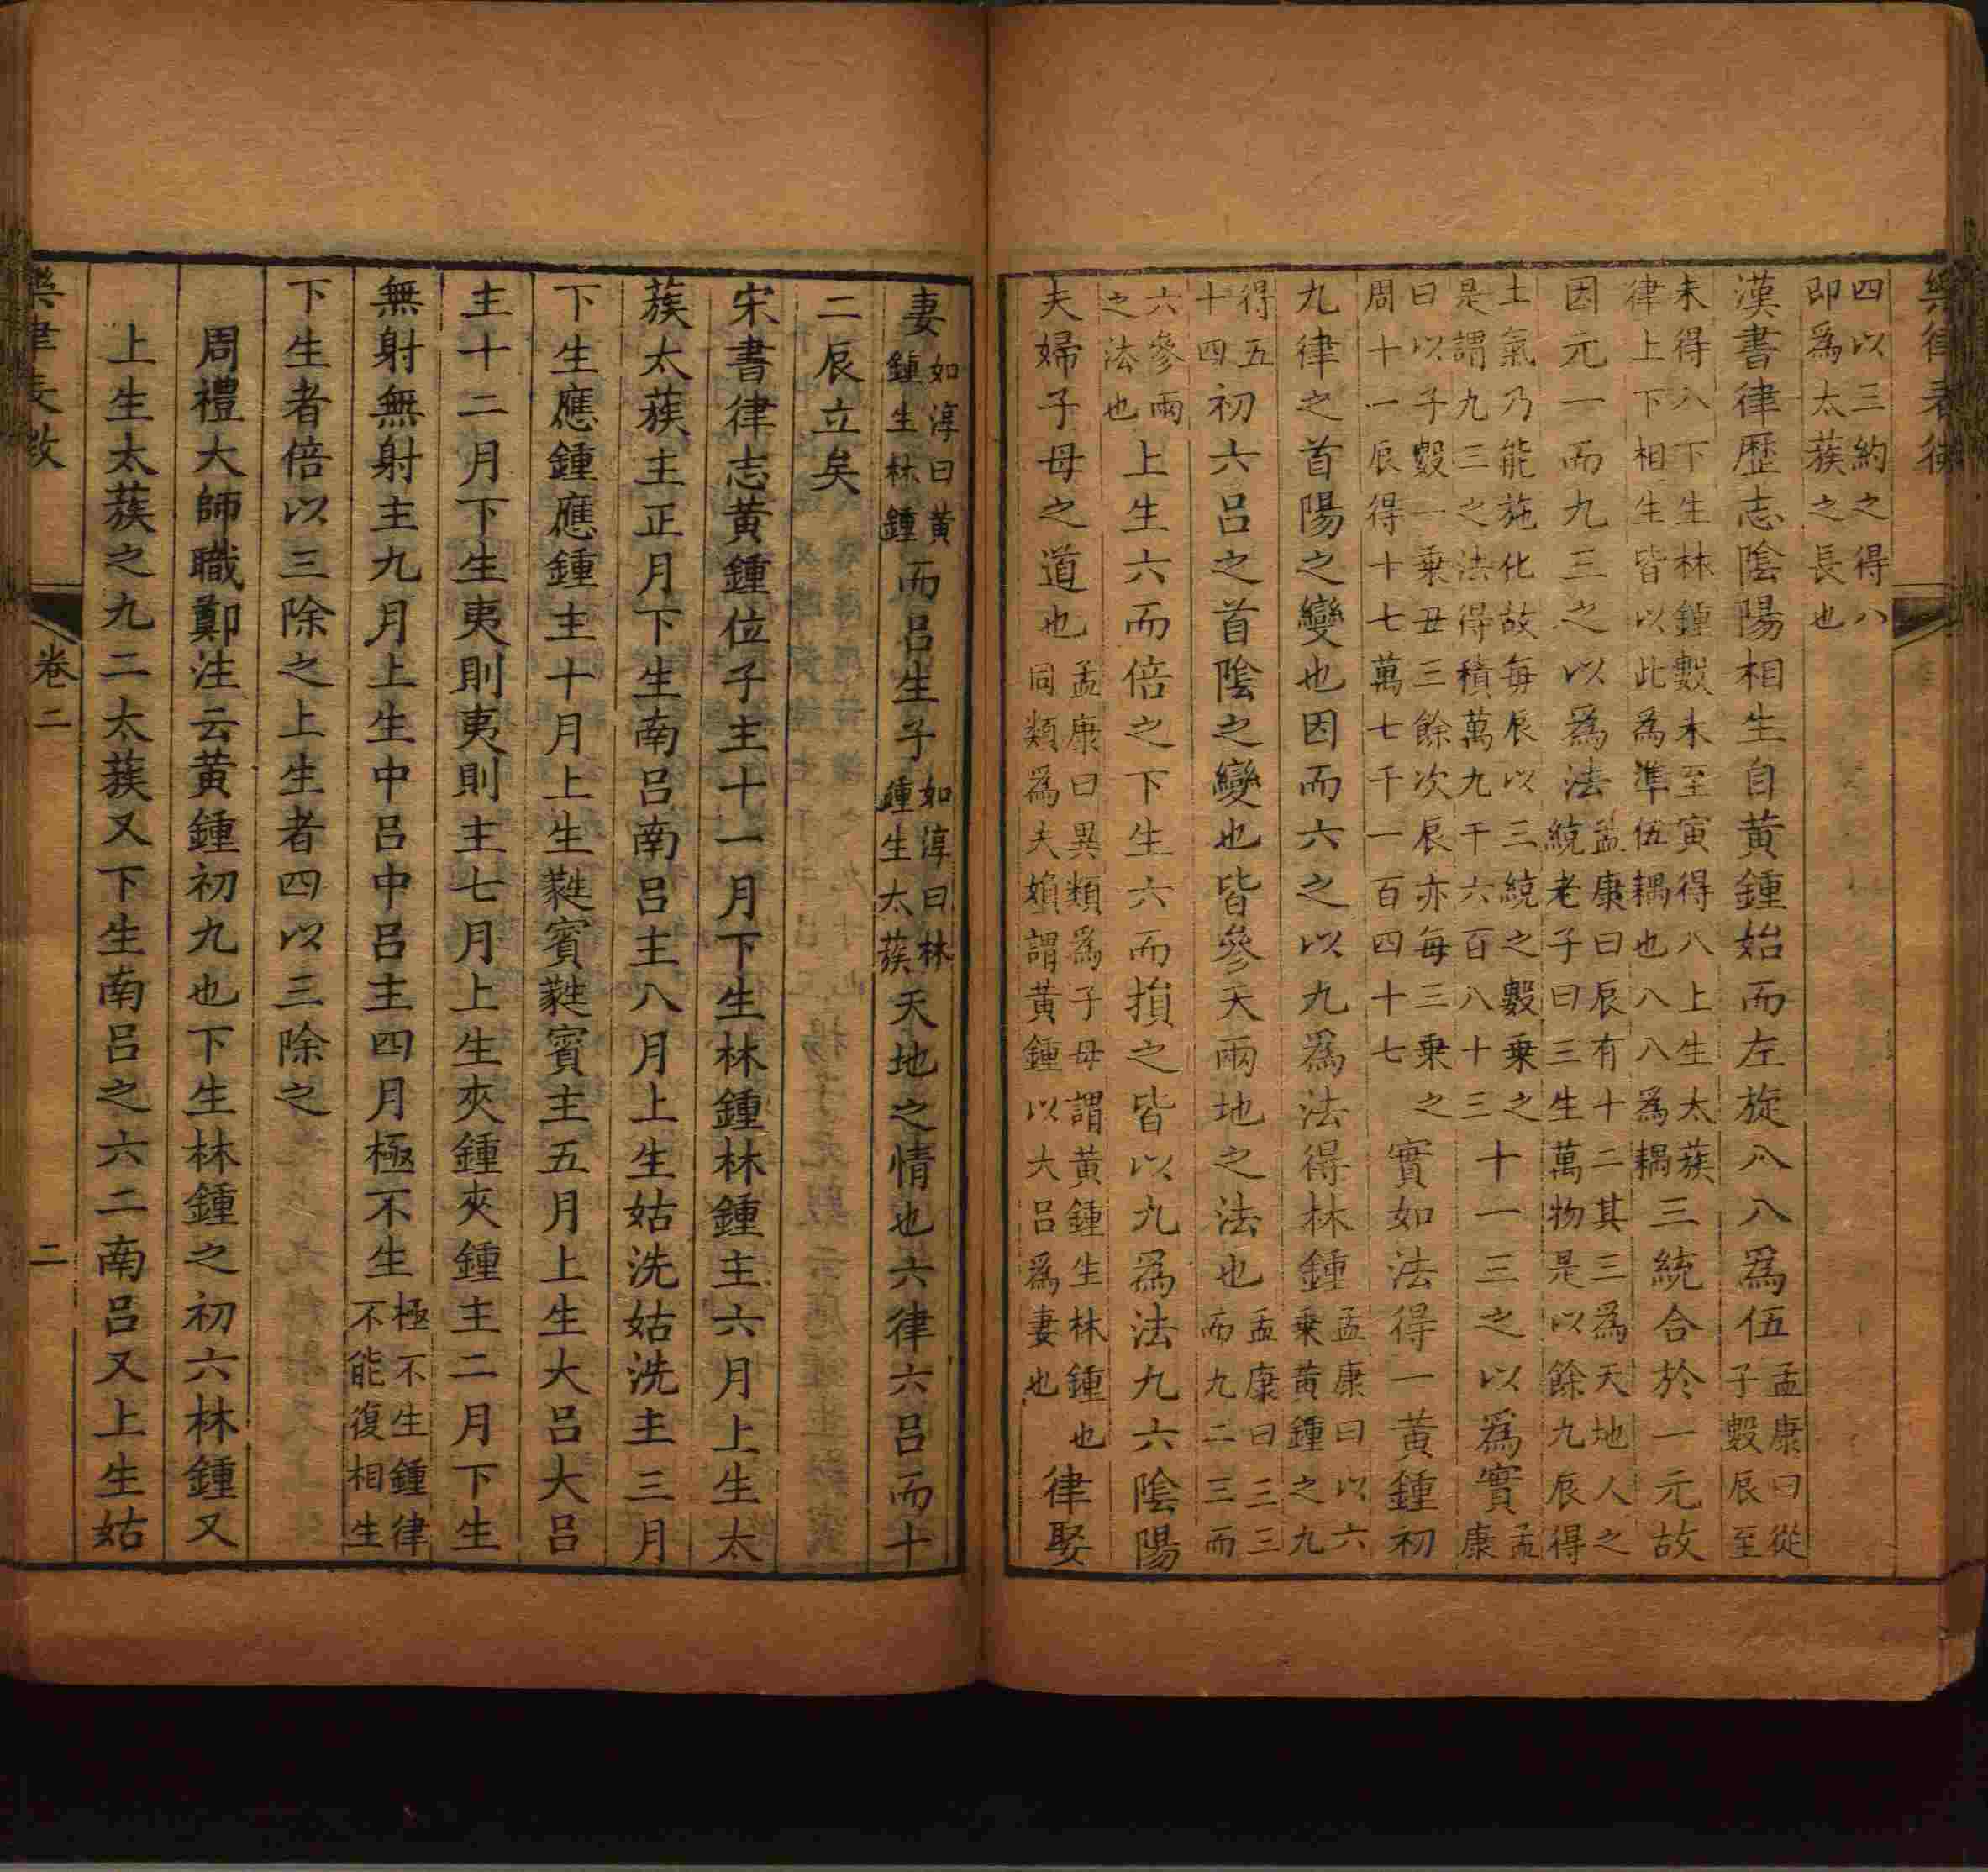 樂律表微
四以三約之得八
即爲太蔟之長也
漢書律歷志陰陽相生自黃鍾始而左旋八八爲伍孟康曰從子數辰至
未得八下生林鍾數未至寅得八上生太蔟律上下相生皆以此爲準伍耦也八八爲耦三統合於一元故
因元一而九三之以爲法孟康曰辰有十二其三爲天地人之統老子曰三生萬物是以餘九辰得
土氣乃能施化故每辰以三統之數乘之是謂九三之法得積萬九千六百八十三十一三之以爲實孟康
曰以子數一乘丑三餘次辰亦每三乘之周十一辰得十七萬七千一百四十七實如法得一黃鍾初
九律之首陽之變也因而六之以九爲法得林鍾孟康曰以六乘黃鍾之九
得五十四初六呂之首陰之變也皆參天兩地之法也孟康曰三三而九二三而
六參兩之法也上生六而倍之下生六而損之皆以九爲法九六陰陽
夫婦子母之道也孟康曰異類爲子母謂黃鍾生林鍾也同類爲夫婦謂黃鍾以大呂爲妻也律娶
妻如淳曰黃鍾生林鍾而呂生子如淳曰林鍾生太蔟天地之情也六律六呂而十
二辰立矣
宋書律志黃鍾位子主十一月下生林鍾林鍾主六月上生太
蔟太蔟主正月下生南呂南呂主八月上生姑洗姑洗主三月
下生應鍾應鍾主十月上生蕤賓蕤賓主五月上生大呂大呂
主十二月下生夷則夷則主七月上生夾鍾夾鍾主二月下生
無射無射主九月上生中呂中呂主四月極不生極不生鍾律不能復相生
下生者倍以三除之上生者四以三除之
周禮大師職鄭注云黃鍾初九也下生林鍾之初六林鍾又
上生太蔟之九二太蔟又下生南呂之六二南呂又上生姑
樂律表微
卷二
二